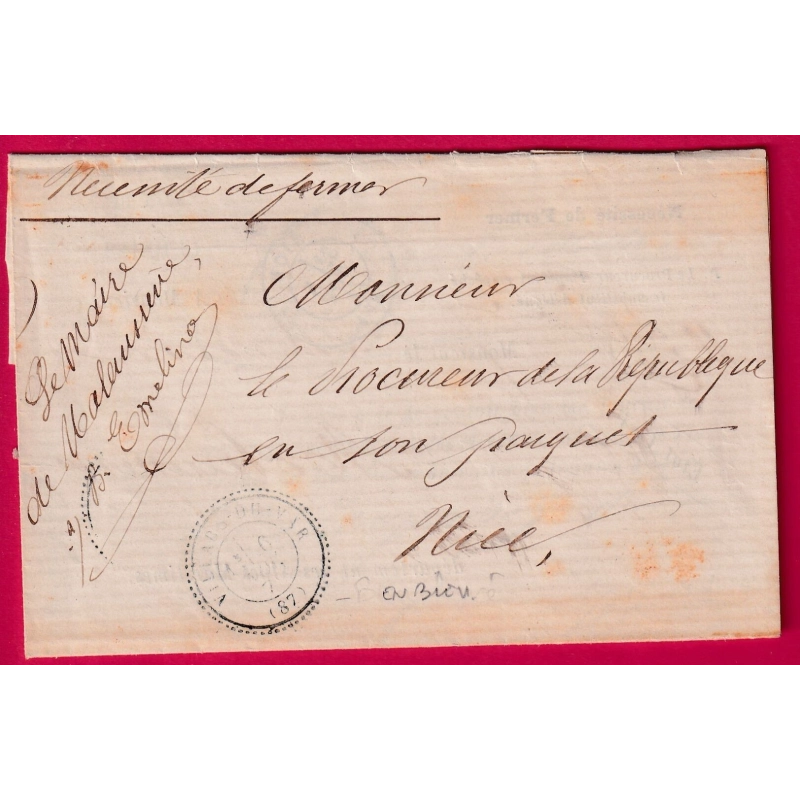 Necessité de fermer
Le Maire
de Malaussène,
B. Emelina
Monsieur
le Procureur de la République
en son parquet
Nice,
VILLARS-DU-VAR
6
(87)
EN BLEU
Nécessité de Fermer